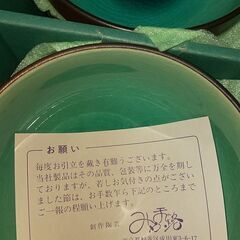 お願い
毎度お引立を戴き有難うございます。
当社製品はその品質、包装等に万全を期し
ておりますが、若しお気付きの点がござい
ました節は、お手数乍ら下記のところまで
ご一報の程願い上げます。
創作陶芸